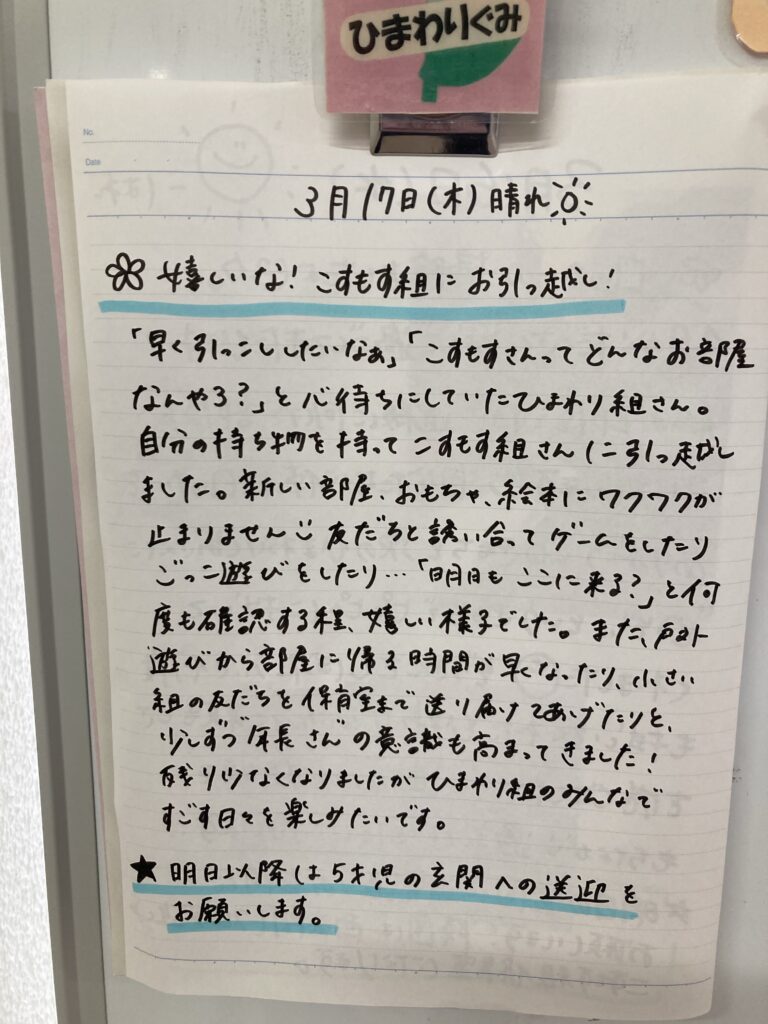 ひまわりぐみ
No.
Date
3月17日(木) 晴れ
嬉しいな! こすもす組に お引っ越し!
「早く引っこししたいなぁ」「こすもすさんって どんなお部屋
なんやろ?」と心待ちにしていたひまわり組さん。
自分の持ち物を持って こすもす組さんに引っ越し
ました。新しい部屋、おもちゃ、絵本にワクワクが
止まりません 友だちと誘い合って ゲームをしたり
ごっこ遊びをしたり…「明日も ここに来る?」と何
度も確認する程、嬉しい様子でした。また、戸外
遊びから部屋に帰る時間が早くなったり、小さい
組の友だちを保育室まで送り届けてあげたりと、
少しずつ“年長さん”の意識も高まってきました!
残り少なくなりましたがひまわり組のみんなで
すごす日々を楽しみたいです。
★ 明日以降は5才児の玄関への送迎を
お願いします。